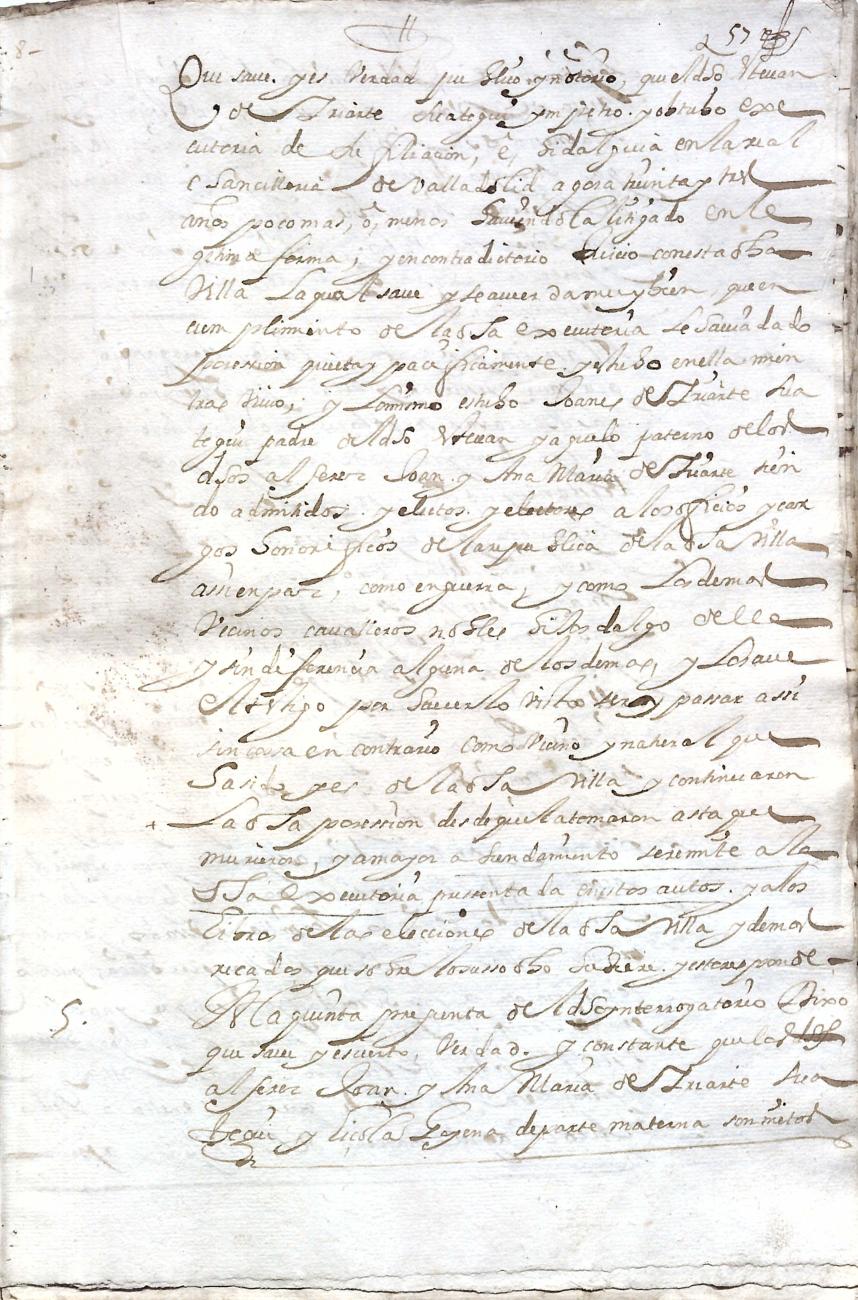 57
Que save. yes Verdad publico, y notorio, queldho Estevan
de Yriarte Suategui ympetro y obtubo exe
cutoria de su filiacion, e, hidalguia en la real
chancilleria de Valladolid agora treinta y tres
años poco mas, o, menos haviendola litigado en le
gitima forma, y en contradictorio Juicio con esta dha
Villa La qual save y se acuerda muy bien, que en
cumplimiento de la dha executoria le havia dado
posession quieta y pacificamente. y estubo en ella mien
tras vivio, y Lomismo estubo Joanes de Yriarte Sua
tegui padre deldho Estevan y aguelo paterno de los
dhos alferez Joan. y Ana Maria de Yriarte sien
do admitidos. y electos. y electores a los officios y car
gos honorificos de la republica de la dha Villa
assi en paz, como en guerra, y como Los demas
Vecinos cavalleros nobles hijosdalgo della
y sin diferencia alguna de los demas, y Lo save
el testigo por haverlo visto ser y passar assi
sin cossa en contrario como vecino y natural que
ha sido y es de la dha Villa y continuaron
La dha posession desde que la tomaron asta que
murieron, y a mayor a bundamiento se remite a la
dha executoria pressentada en estos autos. y a los
Libros de las elecciones de la dha Villa y demas
recados que sobre lo susso dho hubiere. y esto responde
5. A la quinta pregunta deldho ynterrogatorio Dixo
que save y es cierto, Verdad. y constante que los dhos
alferez Joan. y Ana Maria de Yriarte Sua
tegui y de parte materna son nietos